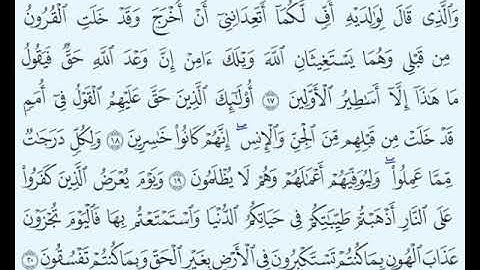 وَٱلَّذِى قَالَ لِوَٰلِدَيْهِ أُفٍّ لَّكُمَآ أَتَعِدَانِنِىٓ أَنْ أُخْرَجَ وَقَدْ خَلَتِ ٱلْقُرُونُ
مِن قَبْلِى وَهُمَا يَسْتَغِيثَانِ ٱللَّهَ وَيْلَكَ ءَامِنْ إِنَّ وَعْدَ ٱللَّهِ حَقٌّ فَيَقُولُ
مَا هَٰذَآ إِلَّآ أَسَٰطِيرُ ٱلْأَوَّلِينَ ١٧ أُو۟لَٰٓئِكَ ٱلَّذِينَ حَقَّ عَلَيْهِمُ ٱلْقَوْلُ فِىٓ أُمَمٍ
قَدْ خَلَتْ مِن قَبْلِهِم مِّنَ ٱلْجِنِّ وَٱلْإِنسِ ۖ إِنَّهُمْ كَانُوا۟ خَٰسِرِينَ ١٨ وَلِكُلٍّ دَرَجَٰتٌ
مِّمَّا عَمِلُوا۟ ۖ وَلِيُوَفِّيَهُمْ أَعْمَٰلَهُمْ وَهُمْ لَا يُظْلَمُونَ ١٩ وَيَوْمَ يُعْرَضُ ٱلَّذِينَ كَفَرُوا۟
عَلَى ٱلنَّارِ أَذْهَبْتُمْ طَيِّبَٰتِكُمْ فِى حَيَاتِكُمُ ٱلدُّنْيَا وَٱسْتَمْتَعْتُم بِهَا فَٱلْيَوْمَ تُجْزَوْنَ
عَذَابَ ٱلْهُونِ بِمَا كُنتُمْ تَسْتَكْبِرُونَ فِى ٱلْأَرْضِ بِغَيْرِ ٱلْحَقِّ وَبِمَا كُنتُمْ تَفْسُقُونَ ٢٠